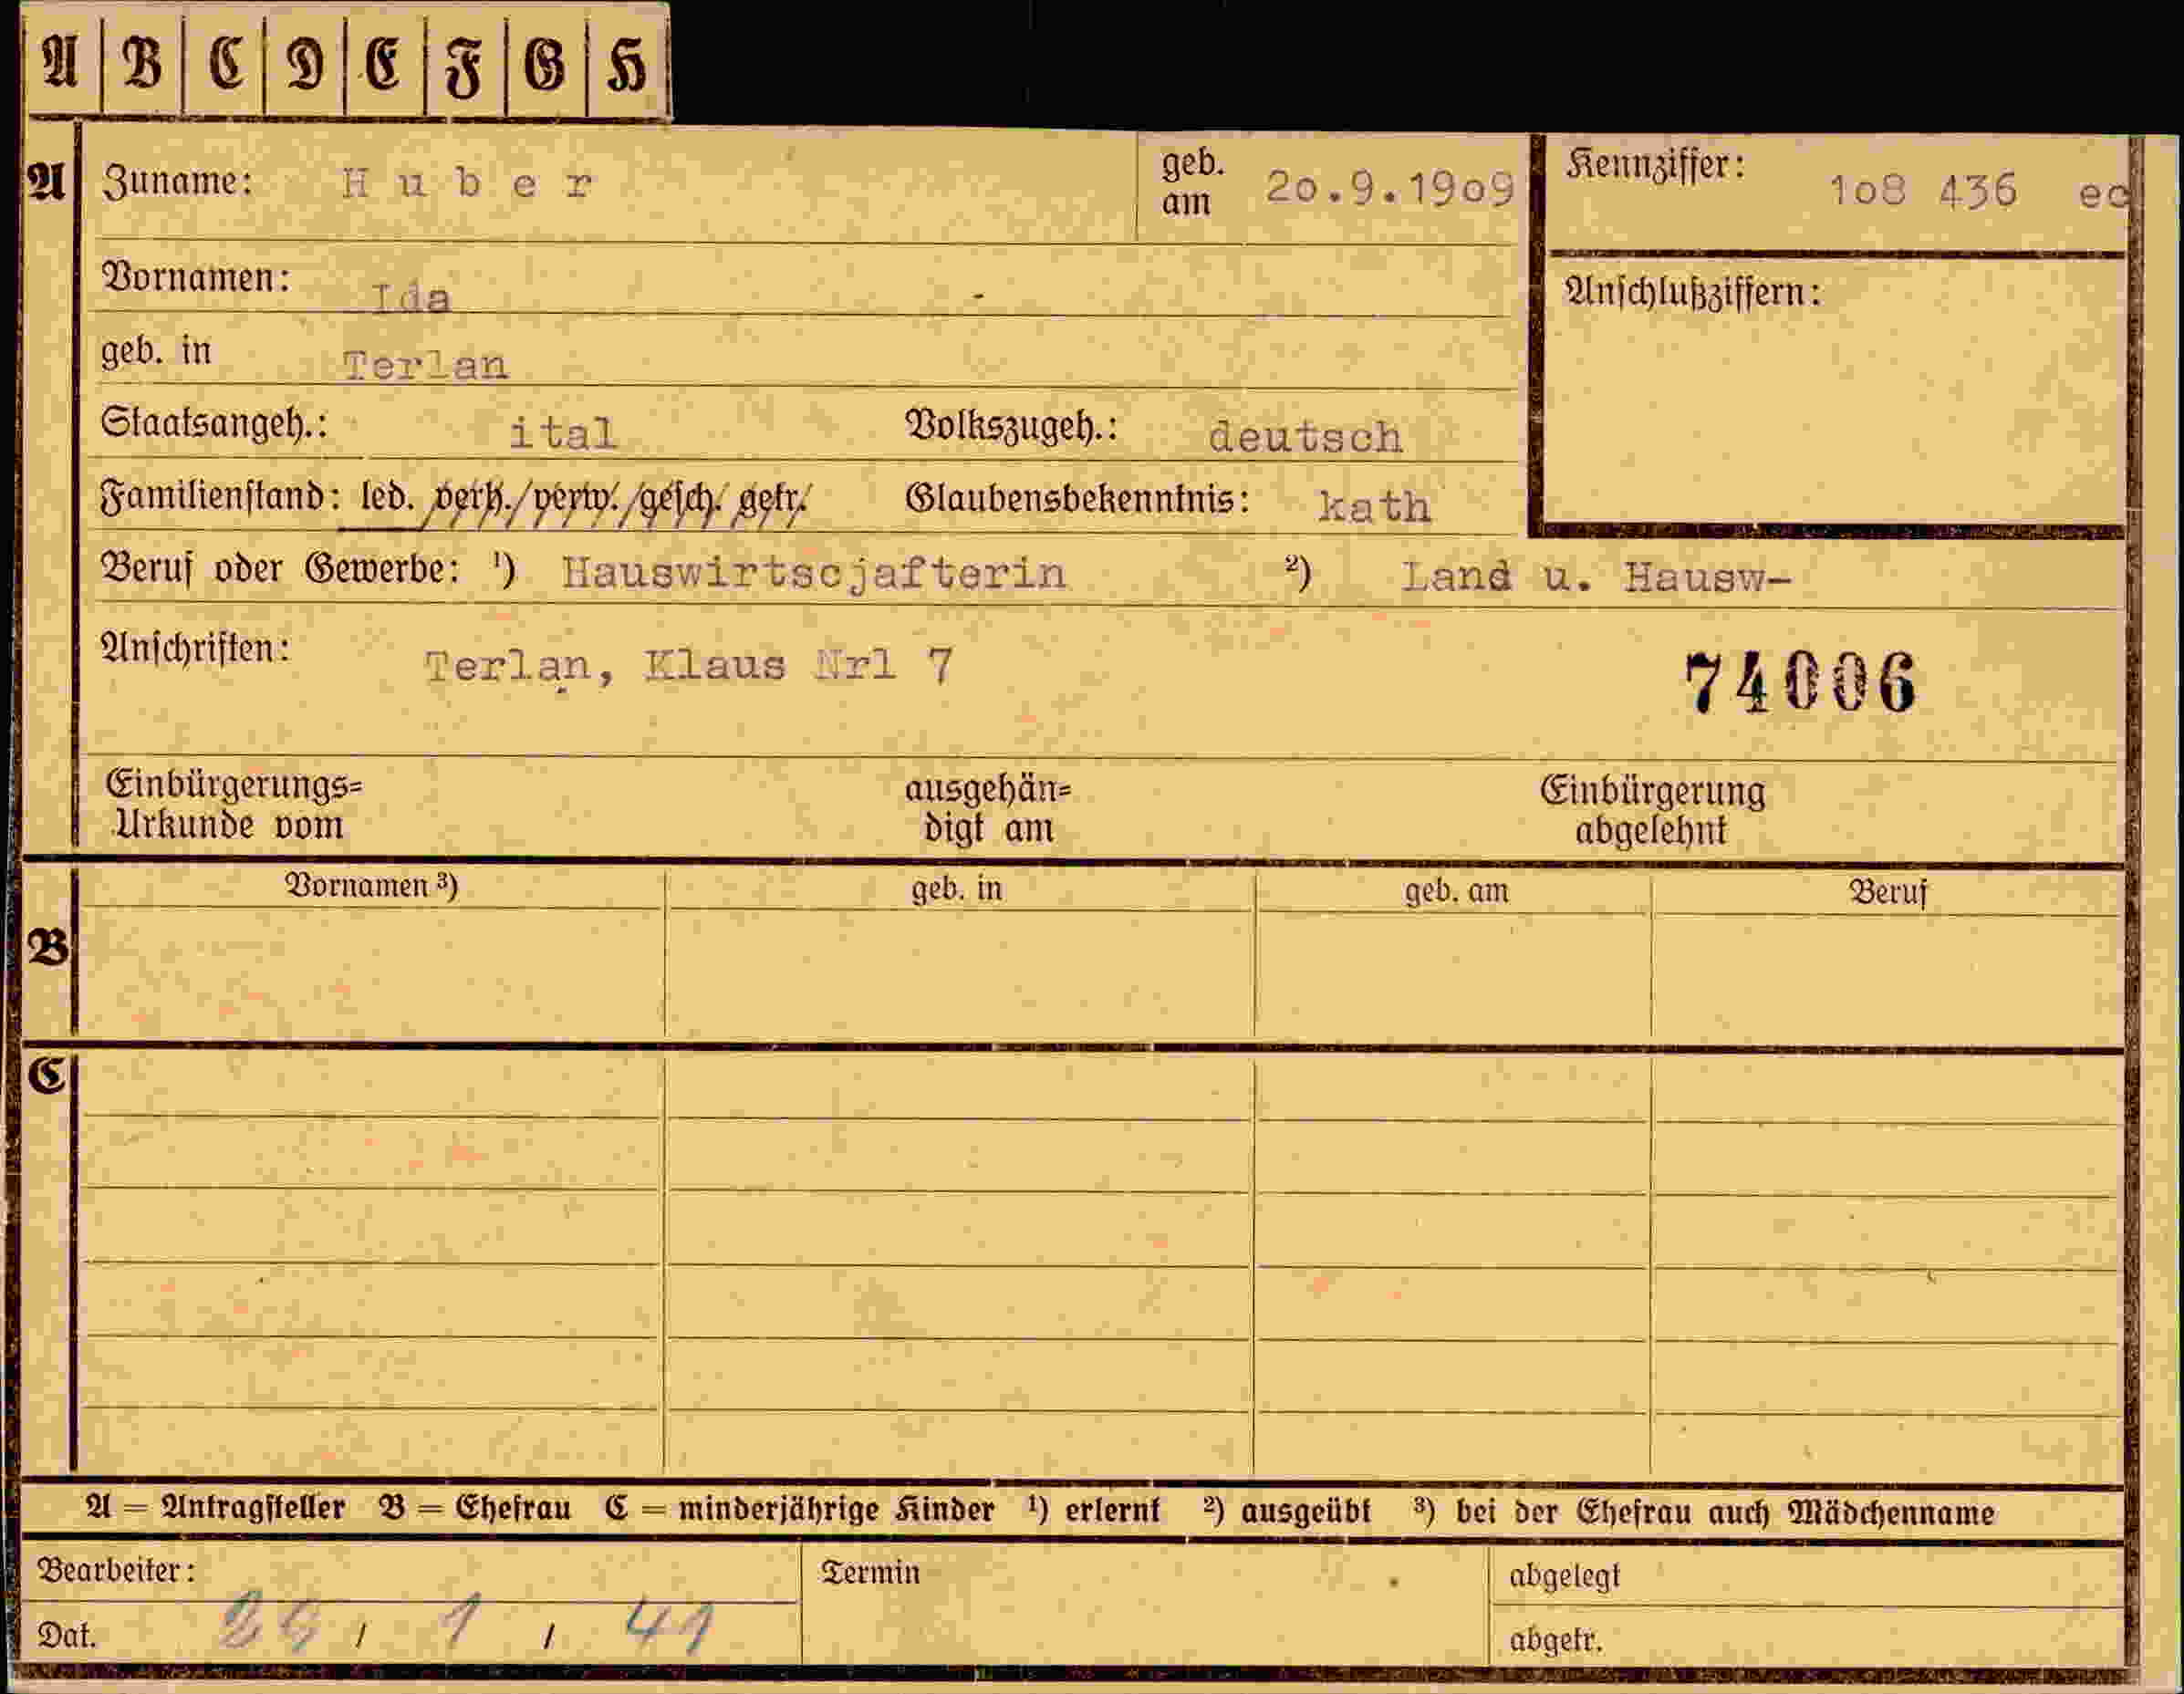 A B C D E F G H
A Zuname: H u b e r geb. am 20.9.1909 Kennziffer: 108 436
Vornamen: Ida - Anschlußziffern:
geb. in Terlan
Staatsangeh.: ital Volkszugeh.: deutsch
Familienstand: led. verh./verw./gesch./getr./ Glaubensbekenntnis: kath
Beruf oder Gewerbe: ¹) Hauswirtscjafterin ²) Land u. Hausw-
Anschriften: Terlan, Klaus Nrl 7
74006
Einbürgerungs= ausgehän= Einbürgerung
Urkunde vom digt am abgelehnt
Vornamen ³) geb. in geb. am Beruf
B
C
A = Antragsteller B = Ehefrau C = minderjährige Kinder ¹) erlernt ²) ausgeübt ³) bei der Ehefrau auch Mädchenname
Bearbeiter: Termin abgelegt
Dat. / 1 / 41 abgetr.